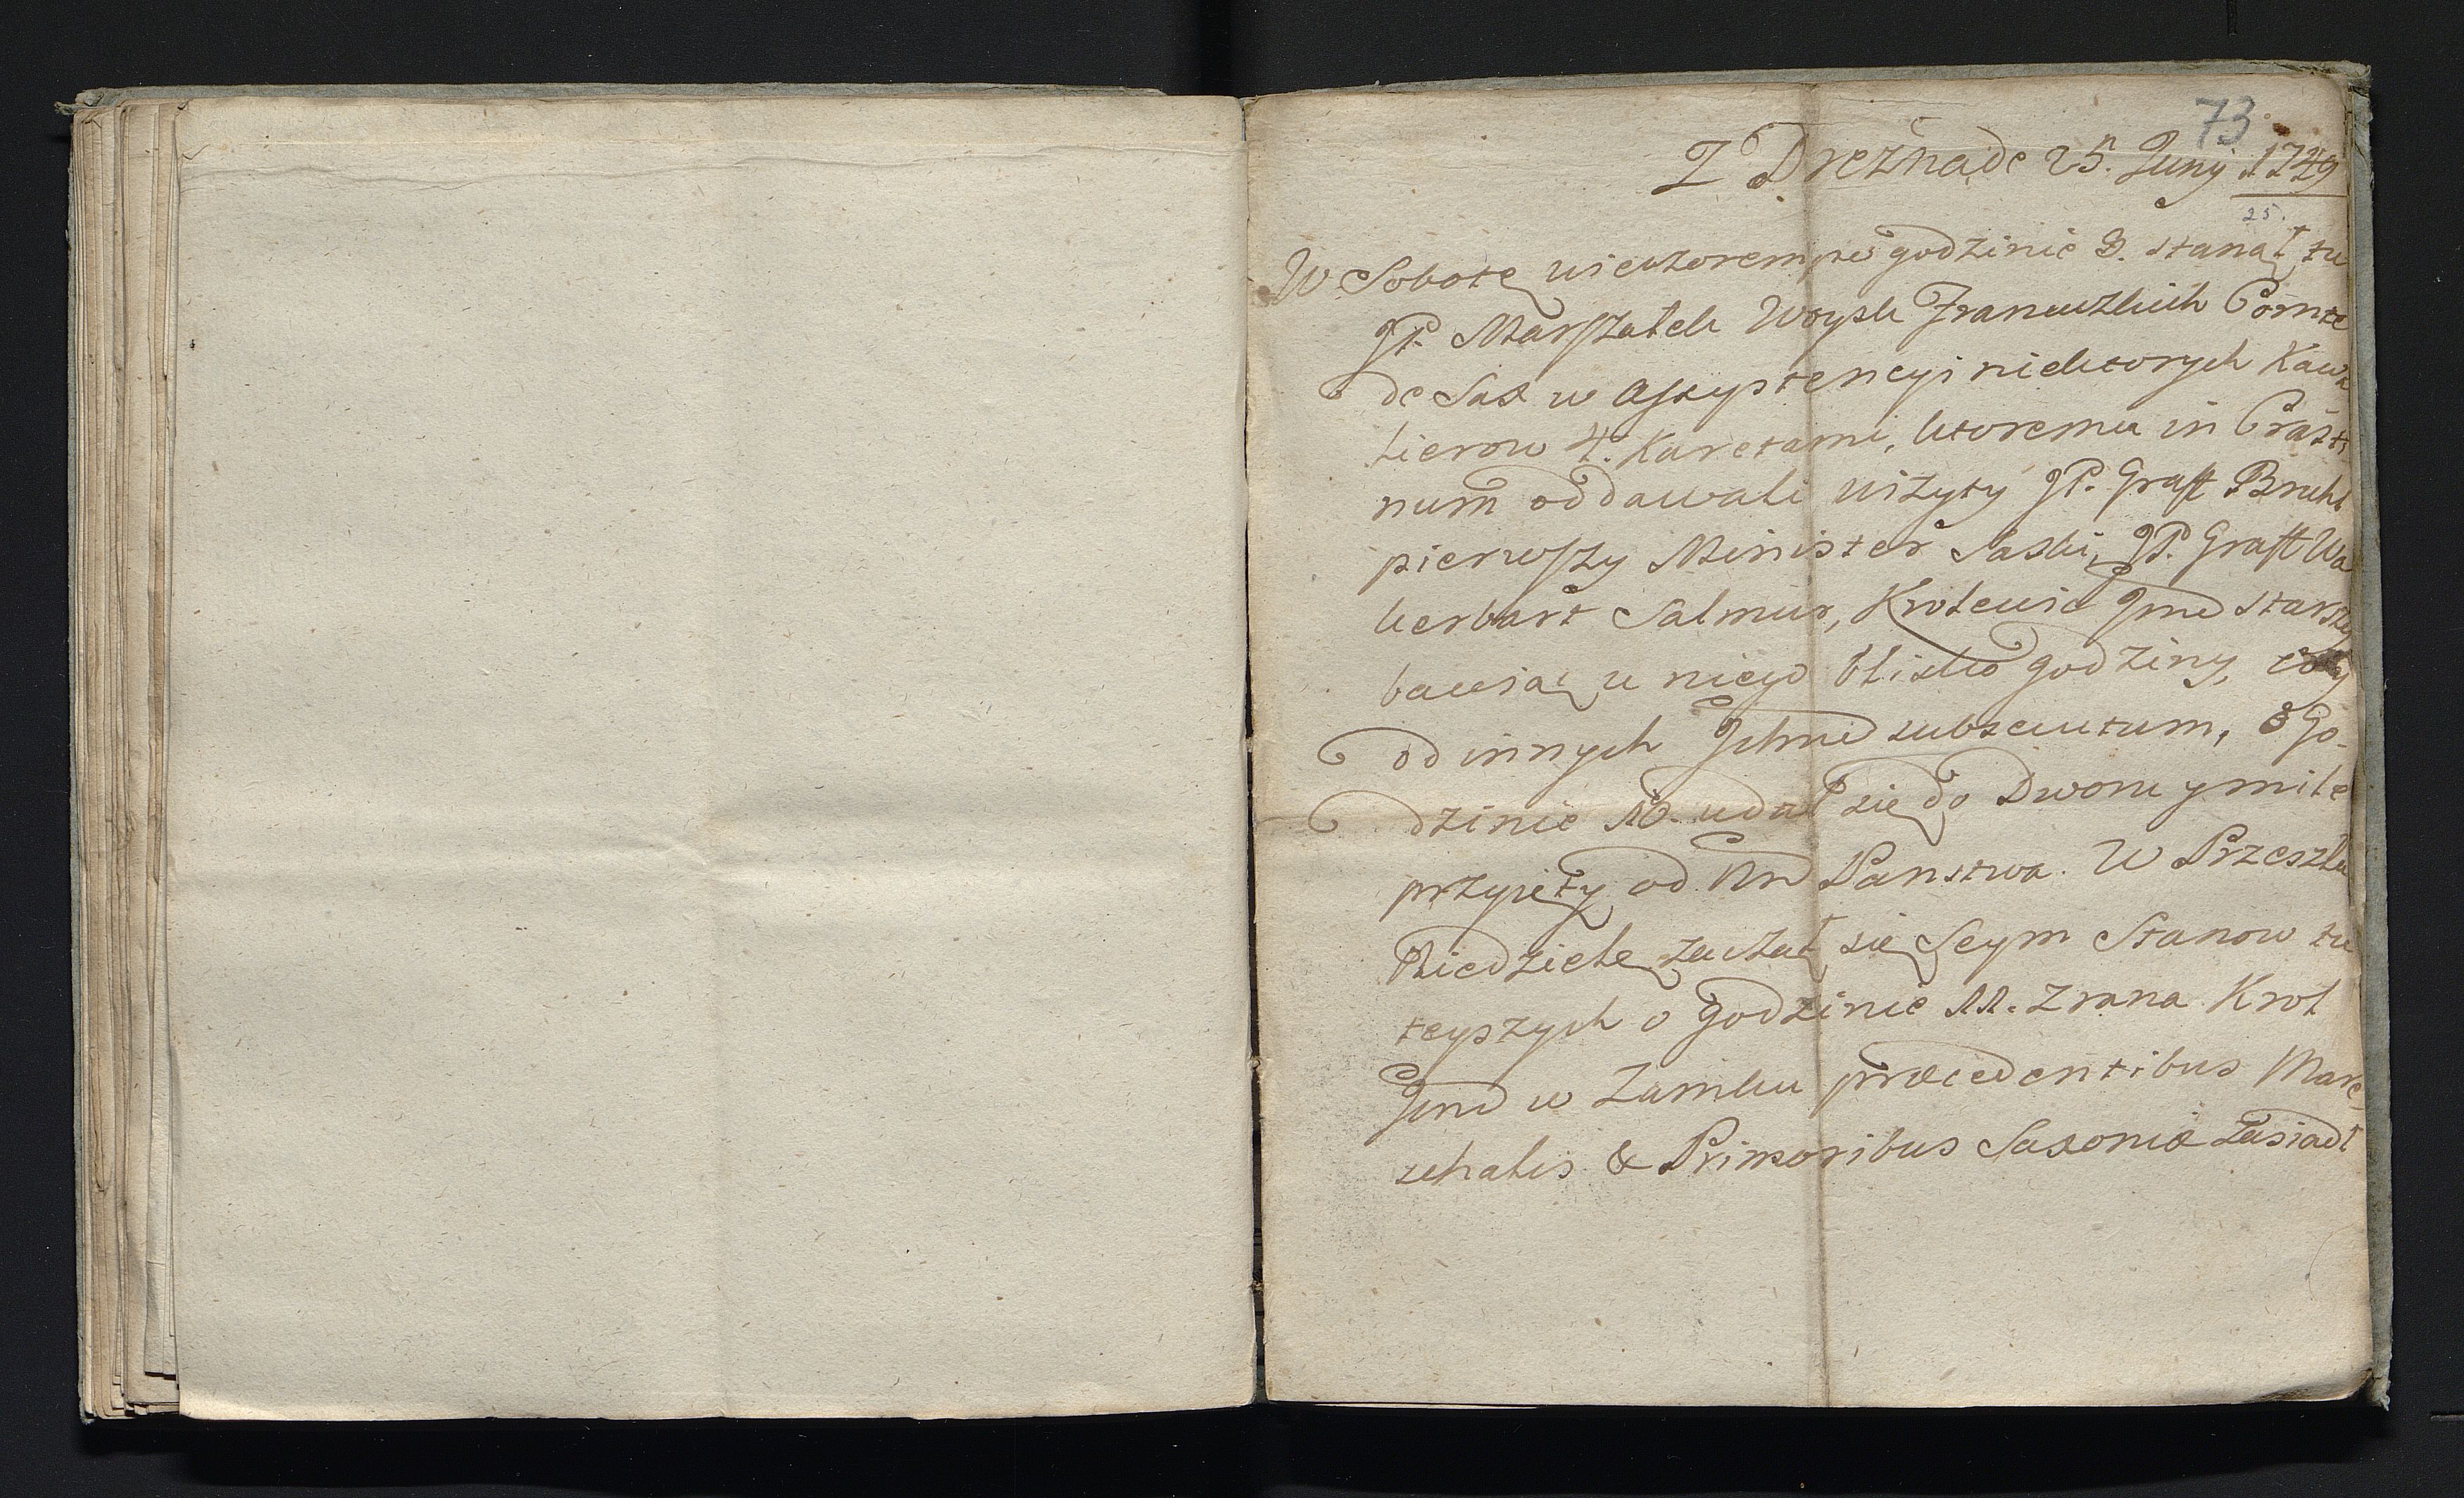 73
Z Drezna de 25. Juny 1749
25.
W Sobotę wieczorem po godzinie 9. stanął tu
JP. Marszałek Woysk Francuzkich Comte
de Sax w Assystencyi niektorych Kawa
lierow 4. Karetami, ktoremu in Crasti
num oddawali wizyty JP. Graff Bruhl
pierwszy Minister Saski, JP. Graff Wa
kerbart Salmur, Krolewic Jmć starszy
bawiąc u niego blisko godziny,
od innych Ichmć subsecutum, o Go-
dzinie 10. udał się do Dworu y mile
przyięty od Państwa. W Przeszłą
Niedzielę zaczął się Seym Stanow tu
teyszych o Godzinie 11. zrana Krol
Jmć w Zamku præcedentibus Mare-
schalis & Primoribus Saxoniæ zasiadł